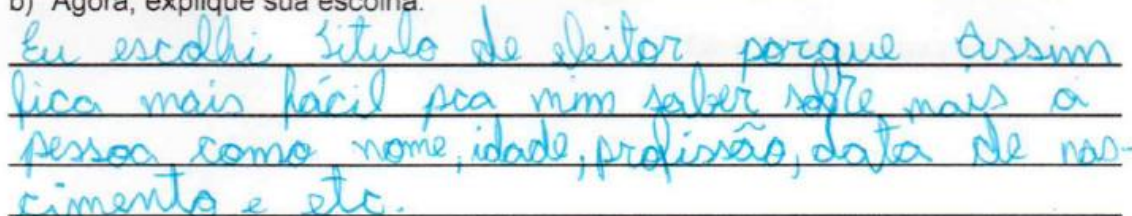 b) Agora, explique sua escolha.
Eu escolhi título de eleitor porque assim
fica mais fácil pca mim saber sobre mais a
pessoa como nome, idade, profissão, data de nas-
cimento e etc.